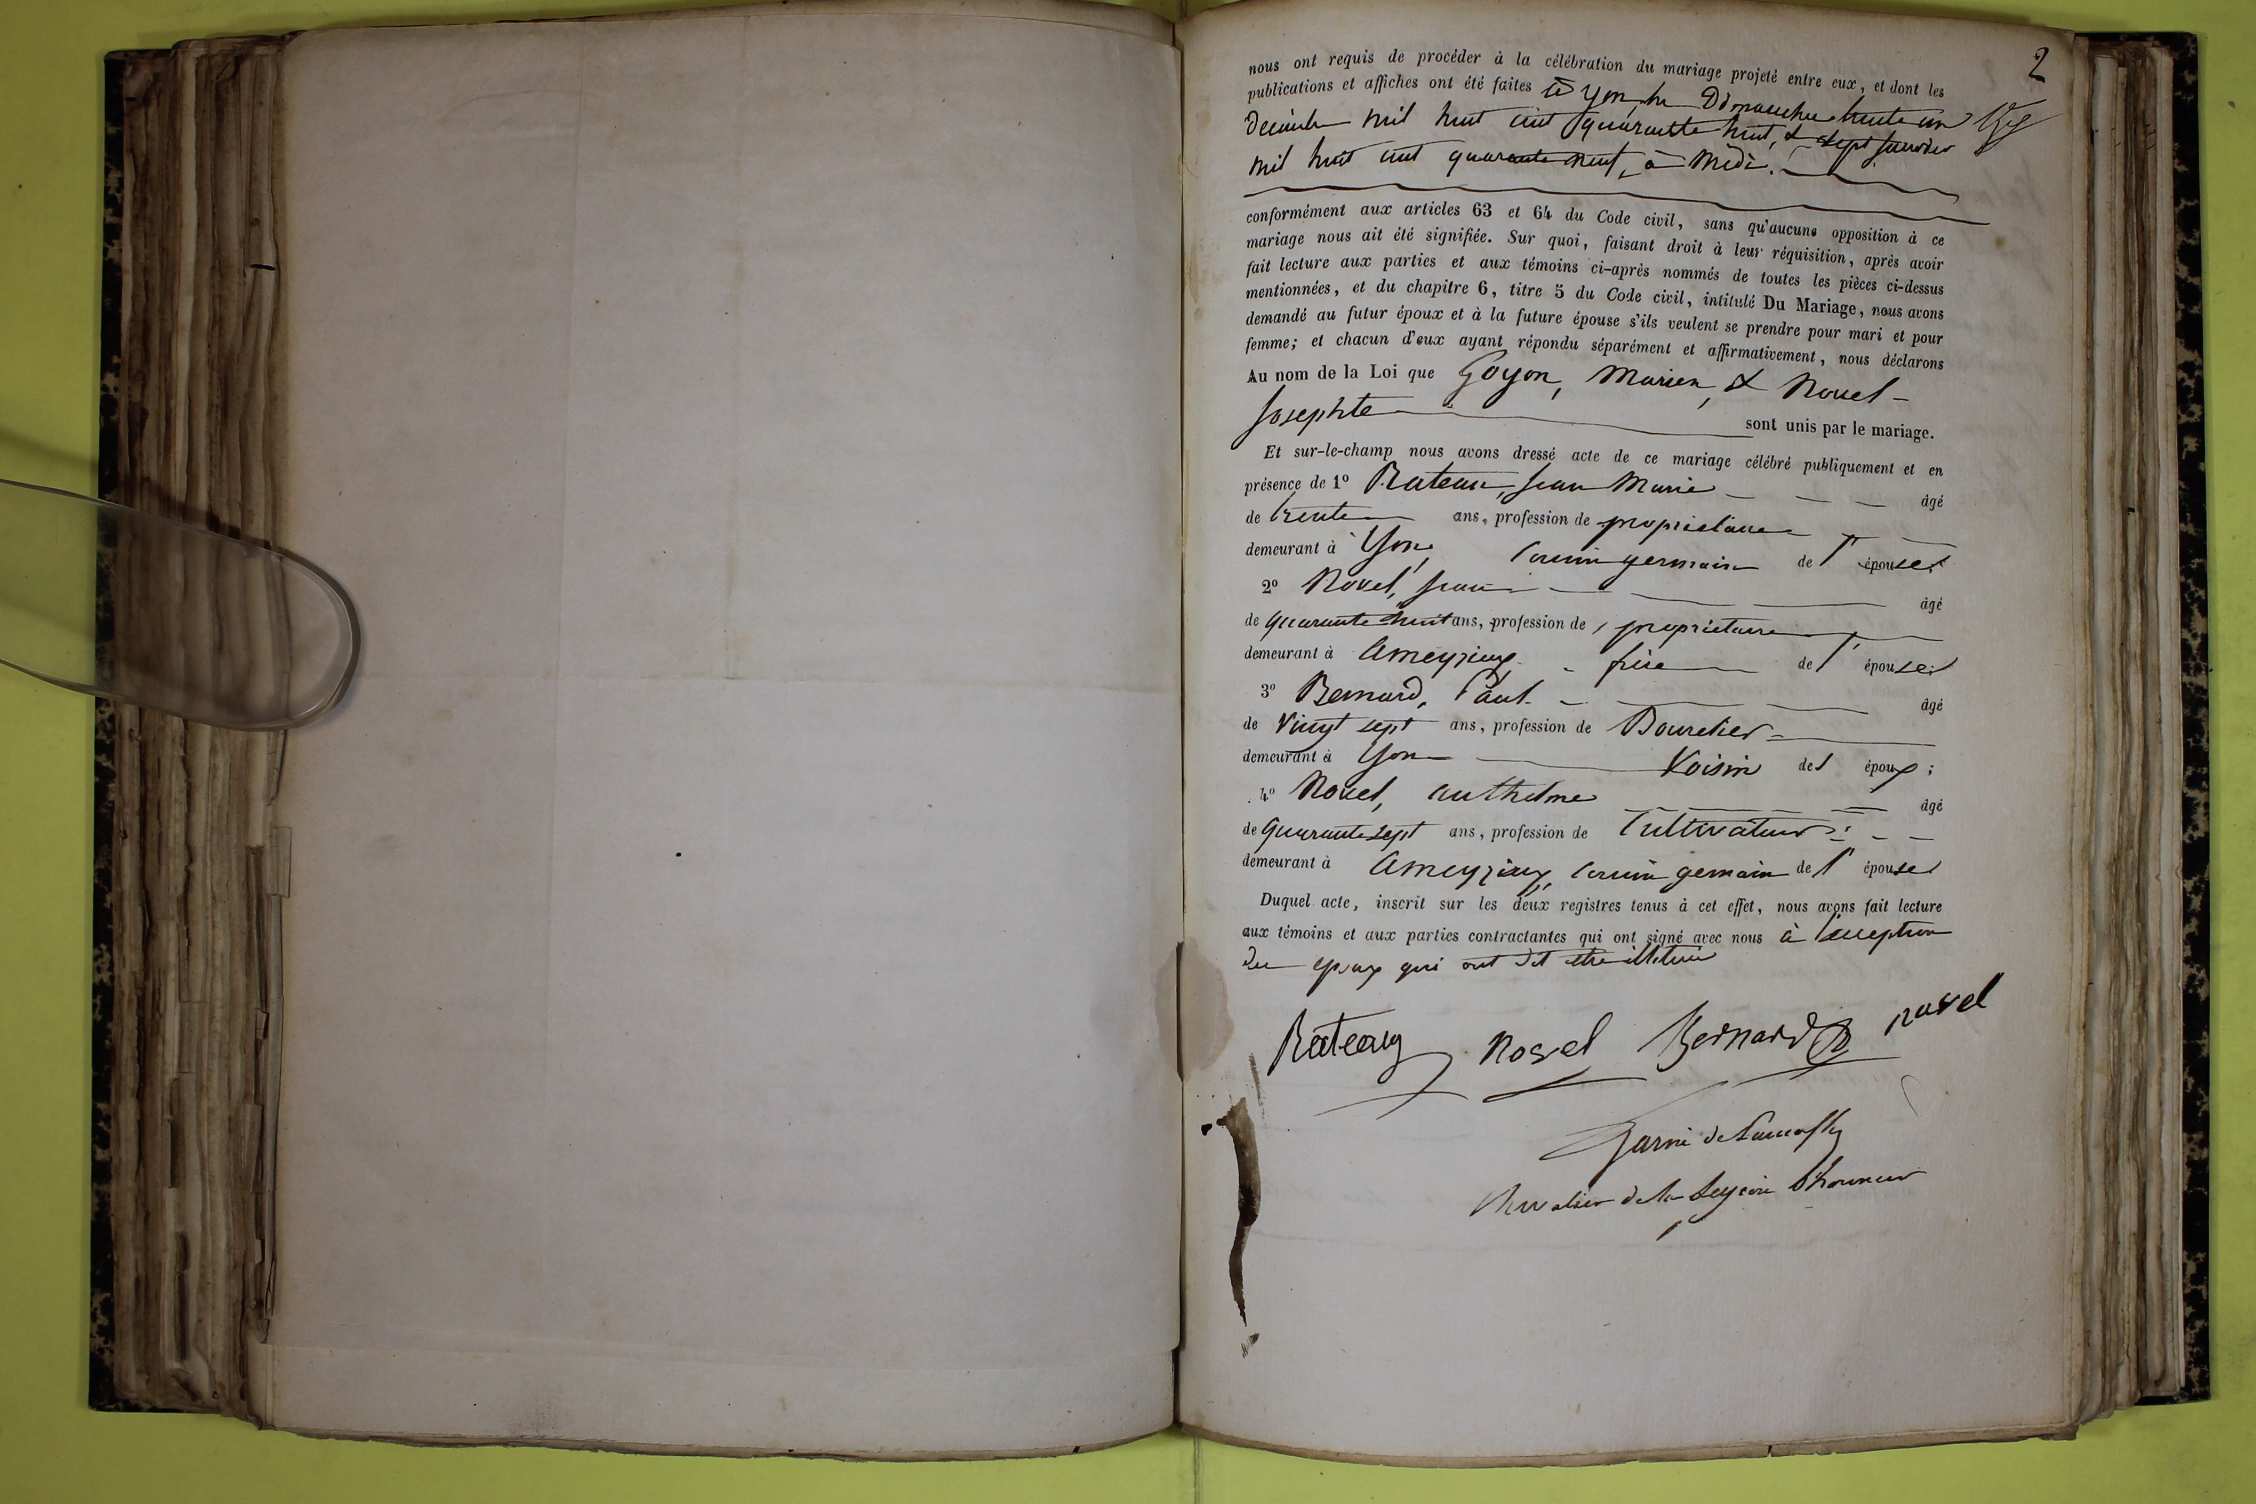 2
nous ont requis de procéder à la célébration du mariage projeté entre eux, et dont les
publications et affiches ont été faites à yon, les Dimanches trente un
Décembre mil huit cent quarante huit, & sept janvier
mil huit cent quarante neuf, à Midi.
conformément aux articles 63 et 64 du Code civil, sans qu'aucune opposition à ce
mariage nous ait été signifiée. Sur quoi, faisant droit à leur réquisition, après avoir
fait lecture aux parties et aux témoins ci-après nommés de toutes les pièces ci-dessus
mentionnées, et du chapitre 6, titre 5 du Code civil, intitulé Du Mariage, nous avons
demandé au futur époux et à la future épouse s'ils veulent se prendre pour mari et pour
femme; et chacun d'eux ayant répondu séparément et affirmativement, nous déclarons
Au nom de la Loi que Goyon, Marien, & Novel
Josephte sont unis par le mariage.
Et sur-le-champ nous avons dressé acte de ce mariage célébré publiquement et en
présence de 1º Rateau, Jean Marie âgé
de trente ans, profession de propriétaire
demeurant à Yon, Cousin germain de l' épouse;
2º Novel, Jean âgé
de quarante huit ans, profession de propriétaire
demeurant à Ameyzieux frère de l' épouse;
3º Bernard, Paul âgé
de Vingt sept ans, profession de Bourelier
demeurant à Yon Voisin des époux;
4º Novel, Anthelme âgé
de Quarante sept ans, profession de Cultivateur
demeurant à Ameyzieux, Cousin germain de l' épouse
Duquel acte, inscrit sur les deux registres tenus à cet effet, nous avons fait lecture
aux témoins et aux parties contractantes qui ont signé avec nous à l'exception
des époux qui ont dit être illitérés
Rateau Novel Bernard novel
Chevalier de la Légion d'honneur